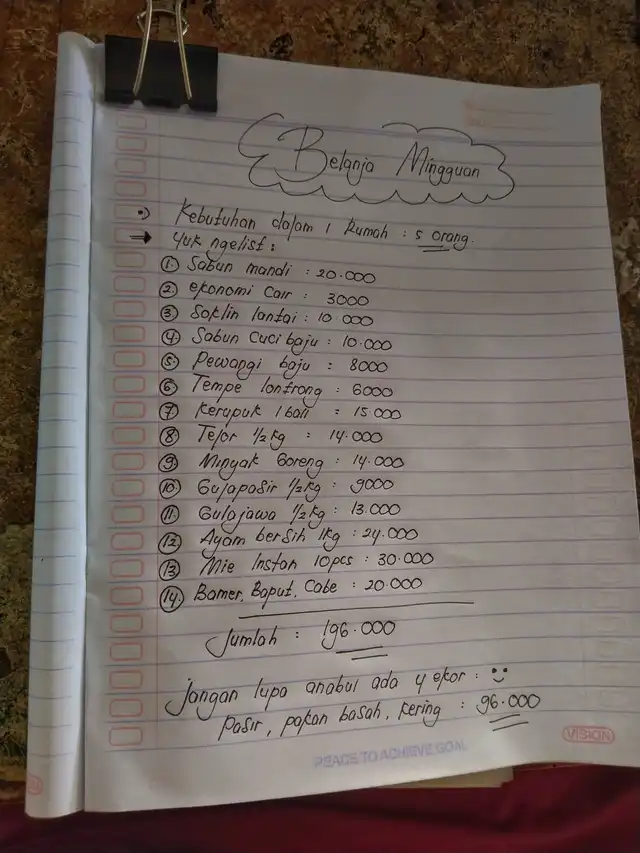 Belanja Mingguan
Kebutuhan dalam 1 Rumah : 5 orang.
Yuk ngelist :
1. Sabun mandi : 20.000
2. ekonomi Cair : 3000
3. Soklin lantai : 10.000
4. Sabun Cuci baju : 10.000
5. Pewangi baju : 8000
6. Tempe lontrong : 6000
7. Kerupuk 1 ball : 15.000
8. Telor 1/2 kg : 14.000
9. Minyak Goreng : 14.000
10. Gulapasir 1/2 kg : 9000
11. Gulajawa 1/2 kg : 13.000
12. Ayam bersih 1kg : 24.000
13. Mie Instan 10pcs : 30.000
14. Bamer, Baput, Cabe : 20.000
Jumlah : 196.000
Jangan lupa anabul ada 4 ekor :
Pasir, pakan basah, kering : 96.000
VISION
REACE TO ACHIEVE GOAL